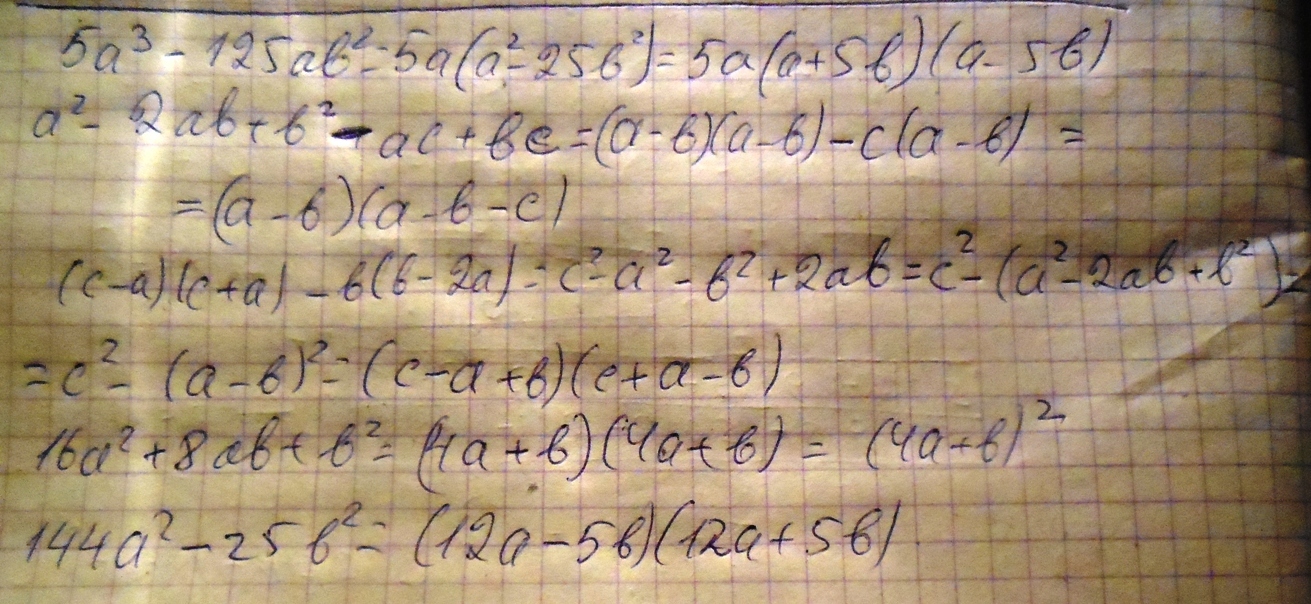 5a³ - 125ab² = 5a(a² - 25b²) = 5a(a+5b)(a-5b)
a² - 2ab + b² - ac + bc = (a-b)(a-b) - c(a-b) =
= (a-b)(a-b-c)
(c-a)(c+a) - b(b-2a) = c² - a² - b² + 2ab = c² - (a² - 2ab + b²) =
= c² - (a-b)² = (c-a+b)(c+a-b)
16a² + 8ab + b² = (4a+b)(4a+b) = (4a+b)²
144a² - 25b² = (12a-5b)(12a+5b)